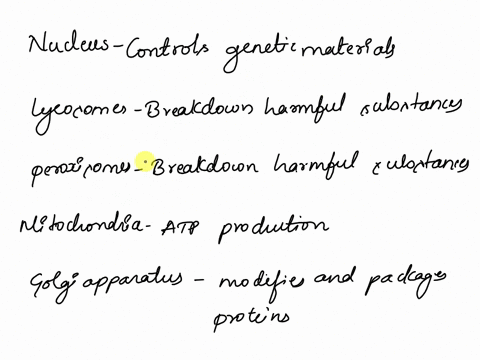 Nucleus - Controls genetic materials
Lycosomes - Breakdown harmful substances
peroxisomes - Breakdown harmful substances
Mitochondria - ATP production
Golgi apparatus - modifies and packages
proteins